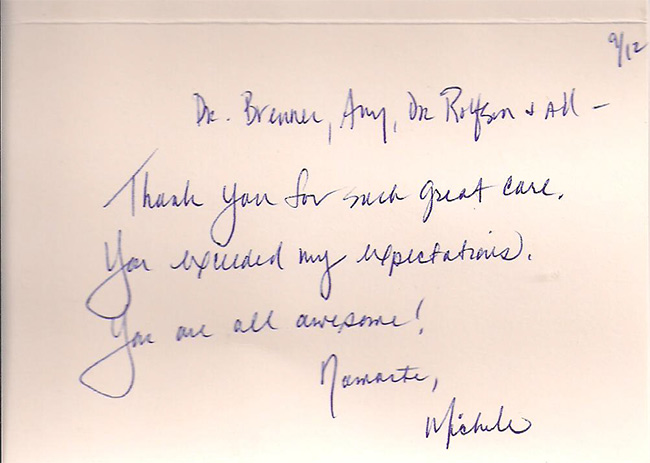 9/12
Dr. Brenner, Amy, Dr Rolfson & All –
Thank you for such great care.
You exceeded my expectations.
You are all awesome!
Namaste,
Michele